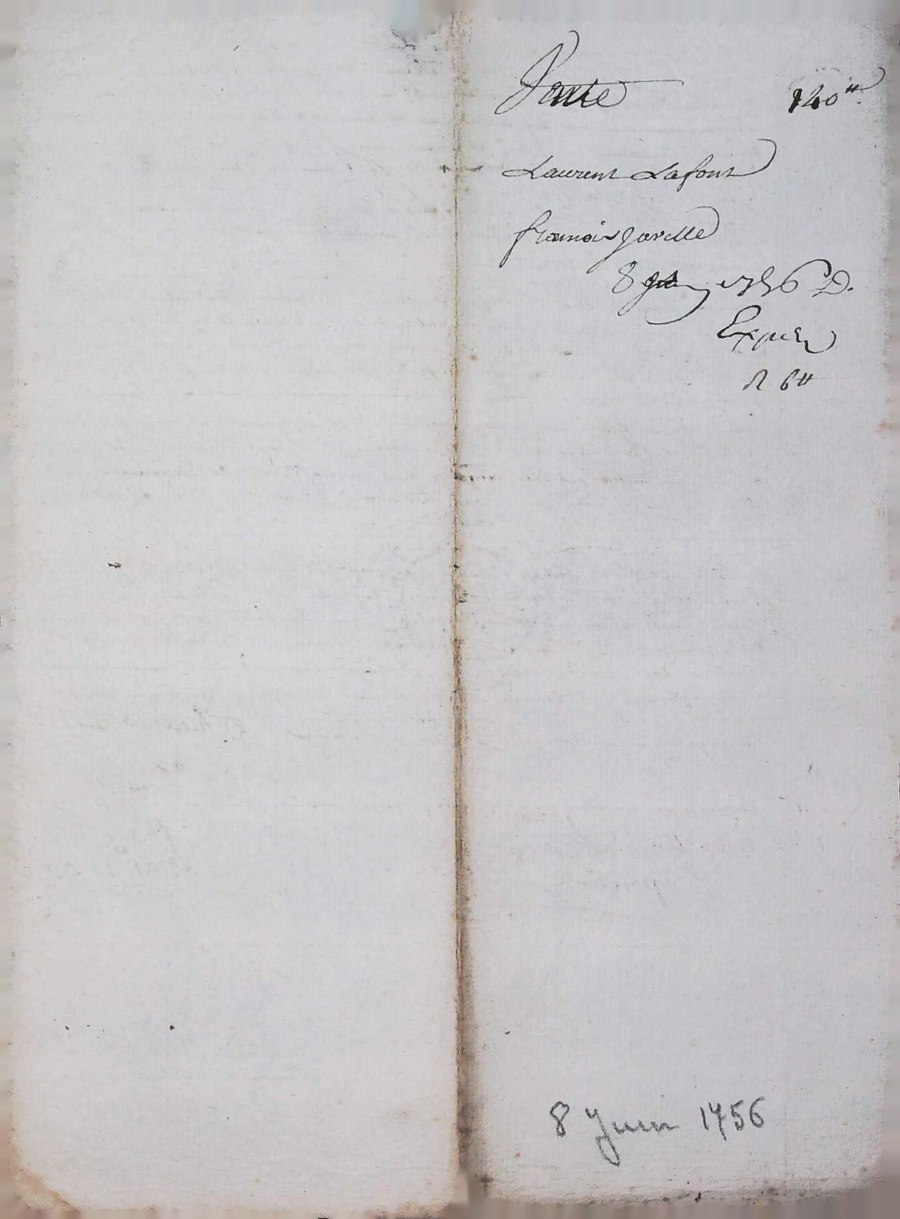 Vente 140#.
Laurent Lafont
francois Javelle
8 juin 1756 D.
Expiée
R 6#
8 Juin 1756